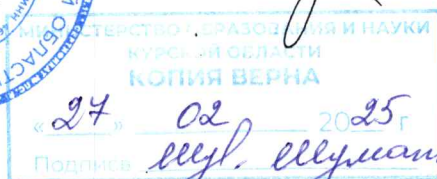 МИНИСТЕРСТВО ОБРАЗОВАНИЯ И НАУКИ
КУРСКОЙ ОБЛАСТИ
КОПИЯ ВЕРНА
«27» 02 2025 г
Подпись
ОЙ ОБЛАСТ